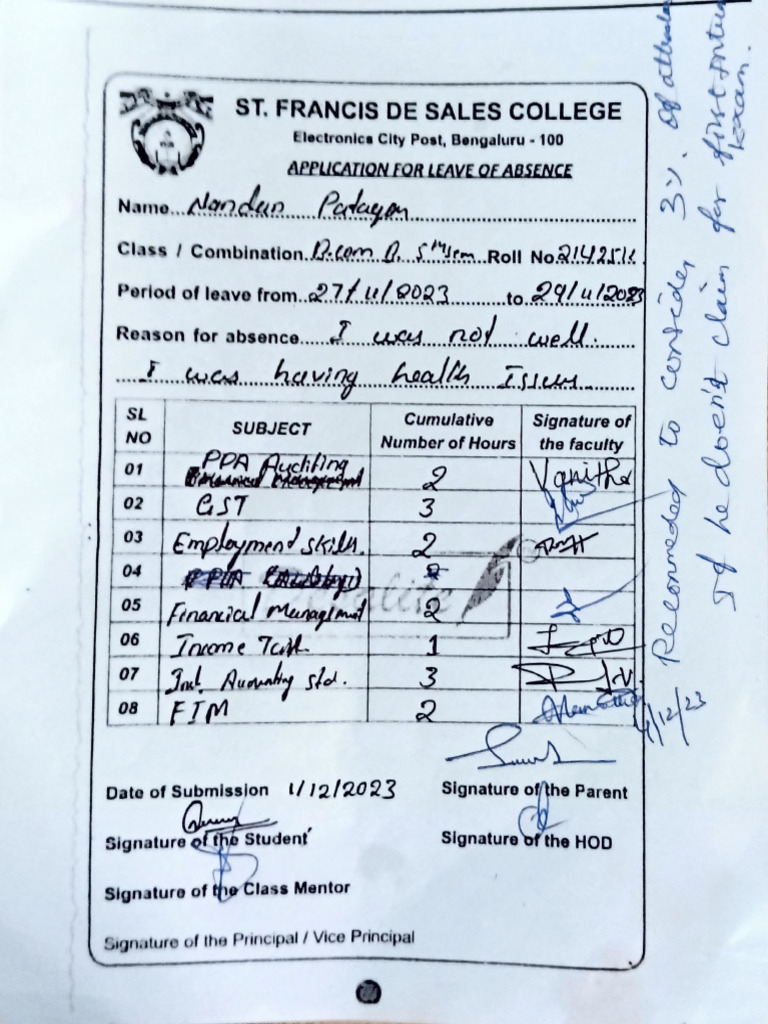 ST. FRANCIS DE SALES COLLEGE
Electronics City Post, Bengaluru - 100
APPLICATION FOR LEAVE OF ABSENCE
Name
Class / Combination B.com B. 5th Sem Roll No.
Period of leave from 27/11/2023 to 29/11/2023
Reason for absence I was not well.
I was having health Issues
SL NO SUBJECT Cumulative Number of Hours Signature of the faculty
01 PPA Auditing 2 Vanitha
02 GST 3
03 Employment skills. 2
04
05 Financial Management 2
06 Income 1
07 Ind. Accounting std. 3
08 FIM 2
4/12/23
Date of Submission 1/12/2023 Signature of the Parent
Signature of the Student Signature of the HOD
Signature of the Class Mentor
Signature of the Principal / Vice Principal
Recommended to consider 3%. of
If he doesn't claim for first
exam.